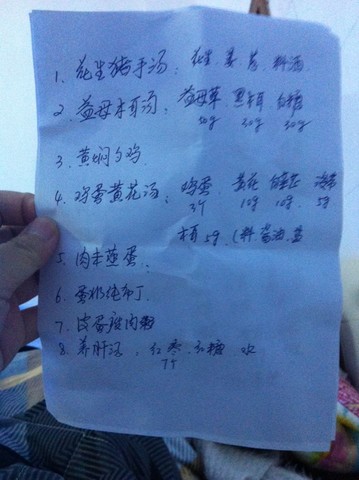 1、花生猪手汤：花生 姜 葱 料酒
2、益母木耳汤：益母草 黑木耳 白糖
50g 30g 30g
3、黄焖勺鸡
4、鸡蛋黄花汤：鸡蛋 黄花
3个 10g 10g 5g
木耳5g (料 酱油 盐
5、肉末蒸蛋
6、蛋奶炖布丁
7、皮蛋瘦肉粥
8、养肝汤：红枣 红糖 水
7个